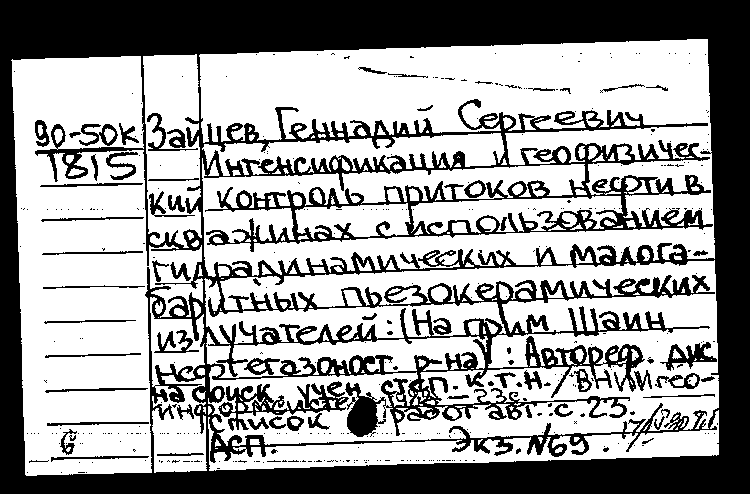 90-50К Зайцев, Геннадий Сергеевич.
1815 Интенсификация и геофизичес-
кий контроль притоков нефти в
скважинах с использованием
гидрадинамических и малога-
баритных пьезокерамических
излучателей: (На прим. Шаин.
нефтегазоност. р-на) : Автореф. дис
на соиск. учен. степ. к.т.н. / ВНИИгео-
информсистем. 23 с.
список работ авт.: с. 23.
6 ДСП. Экз. №69.